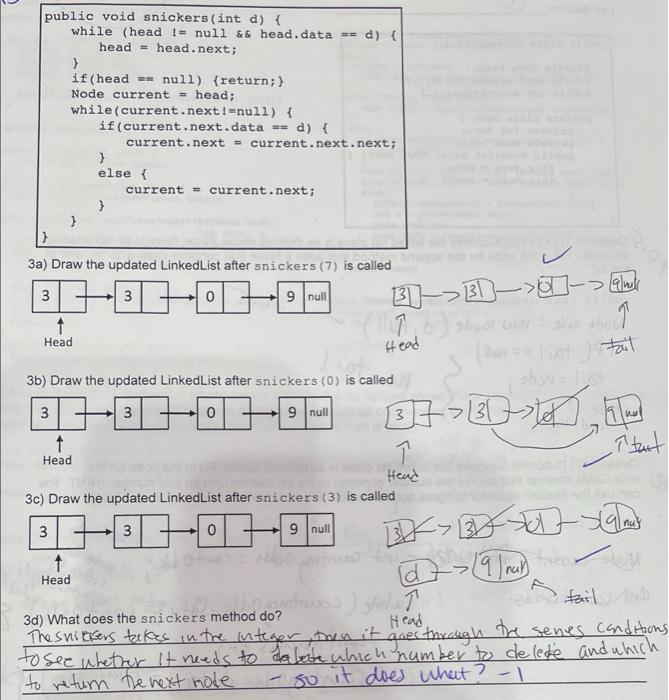 public void snickers(int d) {
while (head != null && head.data == d) {
head = head.next;
}
if(head == null) {return;}
Node current = head;
while(current.next!=null) {
if(current.next.data == d) {
current.next = current.next.next;
}
else {
current = current.next;
}
}
}
3a) Draw the updated LinkedList after snickers(7) is called
3 3 0 9 null
3 3 0 9 null
Head
Head tail
3b) Draw the updated LinkedList after snickers(0) is called
3 3 0 9 null
3 3 0 9 null
Head
Head tail
3c) Draw the updated LinkedList after snickers(3) is called
3 3 0 9 null
3 3 0 9 null
0 9 null
Head
Head tail
3d) What does the snickers method do?
The snickers takes in the integer, then it goes through the series conditions
to see whether it needs to delete which number to delete and which
to return the next node - so it does what? -1